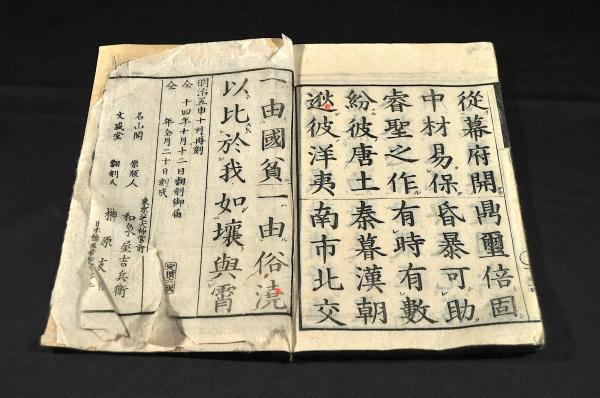 從幕府開鼎璽倍固
中材易保昏暴可助
睿聖之作有時有數
紛彼唐土秦暮漢朝
逖彼洋夷南市北交
一由國貧一由俗澆
以比於我如壤與霄
明治五申十月再刻
仝十四年十月十二日翻刻御届
仝年仝月二十日刻成
東京芝三島町
名山閣 原版人 和泉屋吉兵衛
文盛堂 翻刻人 榊原友